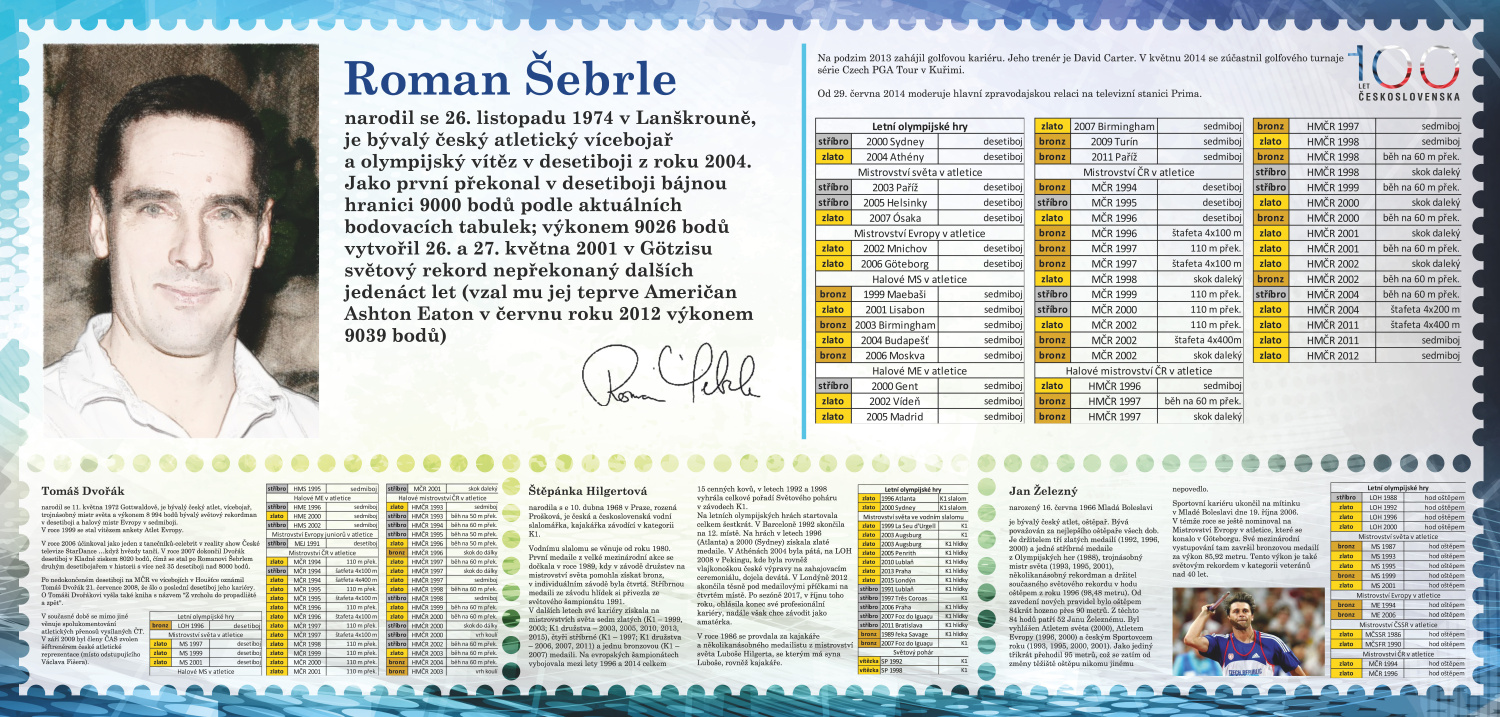 Roman Šebrle
narodil se 26. listopadu 1974 v Lanškrouně,
je bývalý český atletický vícebojař
a olympijský vítěz v desetiboji z roku 2004.
Jako první překonal v desetiboji bájnou
hranici 9000 bodů podle aktuálních
bodovacích tabulek; výkonem 9026 bodů
vytvořil 26. a 27. května 2001 v Götzisu
světový rekord nepřekonaný dalších
jedenáct let (vzal mu jej teprve Američan
Ashton Eaton v červnu roku 2012 výkonem
9039 bodů)
Na podzim 2013 zahájil golfovou kariéru. Jeho trenér je David Carter. V květnu 2014 se zúčastnil golfového turnaje
série Czech PGA Tour v Kuřimi.
Od 29. června 2014 moderuje hlavní zpravodajskou relaci na televizní stanici Prima.
100
LET
ČESKOSLOVENSKA
Letní olympijské hry
stříbro 2000 Sydney desetiboj
zlato 2004 Athény desetiboj
Mistrovství světa v atletice
stříbro 2003 Paříž desetiboj
stříbro 2005 Helsinky desetiboj
zlato 2007 Ósaka desetiboj
Mistrovství Evropy v atletice
zlato 2002 Mnichov desetiboj
zlato 2006 Göteborg desetiboj
Halové MS v atletice
bronz 1999 Maebaši sedmiboj
zlato 2001 Lisabon sedmiboj
bronz 2003 Birmingham sedmiboj
zlato 2004 Budapešť sedmiboj
bronz 2006 Moskva sedmiboj
Halové ME v atletice
stříbro 2000 Gent sedmiboj
zlato 2002 Vídeň sedmiboj
zlato 2005 Madrid sedmiboj
zlato 2007 Birmingham sedmiboj
bronz 2009 Turín sedmiboj
bronz 2011 Paříž sedmiboj
Mistrovství ČR v atletice
bronz MČR 1994 desetiboj
stříbro MČR 1995 desetiboj
zlato MČR 1996 desetiboj
bronz MČR 1996 štafeta 4x100 m
bronz MČR 1997 110 m přek.
bronz MČR 1997 štafeta 4x100 m
zlato MČR 1998 skok daleký
stříbro MČR 1999 110 m přek.
stříbro MČR 2000 110 m přek.
zlato MČR 2002 110 m přek.
bronz MČR 2002 štafeta 4x400m
bronz MČR 2002 skok daleký
Halové mistrovství ČR v atletice
zlato HMČR 1996 sedmiboj
bronz HMČR 1997 běh na 60 m přek.
bronz HMČR 1997 skok daleký
bronz HMČR 1997 sedmiboj
zlato HMČR 1998 sedmiboj
bronz HMČR 1998 běh na 60 m přek.
stříbro HMČR 1998 skok daleký
stříbro HMČR 1999 běh na 60 m přek.
zlato HMČR 2000 skok daleký
bronz HMČR 2000 běh na 60 m přek.
zlato HMČR 2001 skok daleký
zlato HMČR 2001 běh na 60 m přek.
zlato HMČR 2002 skok daleký
bronz HMČR 2002 běh na 60 m přek.
stříbro HMČR 2004 běh na 60 m přek.
zlato HMČR 2004 štafeta 4x200 m
zlato HMČR 2011 štafeta 4x400 m
zlato HMČR 2011 sedmiboj
zlato HMČR 2012 sedmiboj
Tomáš Dvořák
narodil se 11. května 1972 Gottwaldově, je bývalý český atlet, vícebojař,
trojnásobný mistr světa a výkonem 8 994 bodů bývalý světový rekordman
v desetiboji a halový mistr Evropy v sedmiboji.
V roce 1999 se stal vítězem ankety Atlet Evropy.
V roce 2006 účinkoval jako jeden z tanečníků-celebrit v reality show České
televize StarDance ...když hvězdy tančí. V roce 2007 dokončil Dvořák
desetiboj v Kladně ziskem 8020 bodů, čímž se stal po Romanu Šebrlem
druhým desetibojařem v historii s více než 35 desetiboji nad 8000 bodů.
Po nedokončeném desetiboji na MČR ve vícebojích v Hustopeče oznámil
Tomáš Dvořák 21. července 2008, že šlo o poslední desetiboj jeho kariéry.
O Tomáši Dvořákovi vyšla také kniha s názvem "Z vrcholu do propadliště
a zpět".
V současné době se mimo jiné
věnuje spolukomentování
atletických přenosů vysílaných ČT.
V září 2009 byl členy ČAS zvolen
šéftrenérem české atletické
reprezentace (místo odstupujícího
Václava Fišera).
Letní olympijské hry
bronz LOH 1996 desetiboj
Mistrovství světa v atletice
zlato MS 1997 desetiboj
zlato MS 1999 desetiboj
zlato MS 2001 desetiboj
Halové MS v atletice
stříbro HMS 1995 sedmiboj
Halové ME v atletice
stříbro HME 1996 sedmiboj
zlato HME 2000 sedmiboj
stříbro HMS 2002 sedmiboj
Mistrovství Evropy juniorů v atletice
stříbro MEJ 1991 desetiboj
Mistrovství ČR v atletice
zlato MČR 1994 110 m přek.
stříbro MČR 1994 štafeta 4x100 m
zlato MČR 1994 štafeta 4x400 m
zlato MČR 1995 110 m přek.
zlato MČR 1995 štafeta 4x100 m
zlato MČR 1996 110 m přek.
zlato MČR 1996 štafeta 4x100 m
zlato MČR 1997 110 m přek.
zlato MČR 1997 štafeta 4x100 m
zlato MČR 1998 110 m přek.
zlato MČR 1999 110 m přek.
zlato MČR 2000 110 m přek.
zlato MČR 2001 110 m přek.
stříbro MČR 2001 skok daleký
Halové mistrovství ČR v atletice
zlato HMČR 1993 sedmiboj
stříbro HMČR 1993 běh na 50 m přek.
stříbro HMČR 1994 běh na 60 m přek.
stříbro HMČR 1995 běh na 50 m přek.
zlato HMČR 1996 běh na 50 m přek.
bronz HMČR 1996 skok do dálky
zlato HMČR 1997 běh na 60 m přek.
zlato HMČR 1997 skok do dálky
zlato HMČR 1997 sedmiboj
stříbro HMČR 1998 běh na 60 m přek.
stříbro HMČR 1998 sedmiboj
zlato HMČR 1999 běh na 60 m přek.
zlato HMČR 2000 běh na 60 m přek.
stříbro HMČR 2000 skok do dálky
stříbro HMČR 2000 vrh koulí
stříbro HMČR 2002 běh na 60 m přek.
zlato HMČR 2003 běh na 60 m přek.
bronz HMČR 2004 běh na 60 m přek.
bronz HMČR 2003 vrh koulí
Štěpánka Hilgertová
narodila s e 10. dubna 1968 v Praze, rozená
Prošková, je česká a československá vodní
slalomářka, kajakářka závodící v kategorii
K1.
Vodnímu slalomu se věnuje od roku 1980.
První medaile z velké mezinárodní akce se
dočkala v roce 1989, kdy v závodě družstev na
mistrovství světa pomohla získat bronz,
v individuálním závodě byla čtvrtá. Stříbrnou
medaili ze závodu hlídek si přivezla ze
světového šampionátu 1991.
V dalších letech své kariéry získala na
mistrovstvích světa sedm zlatých (K1 – 1999,
2003; K1 družstva – 2003, 2005, 2010, 2013,
2015), čtyři stříbrné (K1 – 1997; K1 družstva
– 2006, 2007, 2011) a jednu bronzovou (K1 –
2007) medaili. Na evropských šampionátech
vybojovala mezi lety 1996 a 2014 celkem
15 cenných kovů, v letech 1992 a 1998
vyhrála celkové pořadí Světového poháru
v závodech K1.
Na letních olympijských hrách startovala
celkem šestkrát. V Barceloně 1992 skončila
na 12. místě. Na hrách v letech 1996
(Atlanta) a 2000 (Sydney) získala zlaté
medaile. V Athénách 2004 byla pátá, na LOH
2008 v Pekingu, kde byla rovněž
vlajkonoškou české výpravy na zahajovacím
ceremoniálu, dojela devátá. V Londýně 2012
skončila těsně pod medailovými příčkami na
čtvrtém místě. Po sezóně 2017, v říjnu toho
roku, ohlásila konec své profesionální
kariéry, nadále však chce závodit jako
amatérka.
V roce 1986 se provdala za kajakáře
a několikanásobného medailistu z mistrovství
světa Luboše Hilgerta, se kterým má syna
Luboše, rovněž kajakáře.
Letní olympijské hry
zlato 1996 Atlanta K1 slalom
zlato 2000 Sydney K1 slalom
Mistrovství světa ve vodním slalomu
zlato 1999 La Seu d'Urgell K1
zlato 2003 Augsburg K1
zlato 2003 Augsburg K1 hlídky
zlato 2005 Penrith K1 hlídky
zlato 2010 Lublaň K1 hlídky
zlato 2013 Praha K1 hlídky
zlato 2015 Londýn K1 hlídky
stříbro 1991 Lublaň K1 hlídky
stříbro 1997 Três Coroas K1
stříbro 2006 Praha K1 hlídky
stříbro 2007 Foz do Iguaçu K1 hlídky
stříbro 2011 Bratislava K1 hlídky
bronz 1989 řeka Savage K1 hlídky
bronz 2007 Foz do Iguaçu K1
Světový pohár
vítězka SP 1992 K1
vítězka SP 1998 K1
Jan Železný
narozený 16. června 1966 Mladá Boleslavi
je bývalý český atlet, oštěpař. Bývá
považován za nejlepšího oštěpaře všech dob.
Je držitelem tří zlatých medailí (1992, 1996,
2000) a jedné stříbrné medaile
z Olympijských her (1988), trojnásobný
mistr světa (1993, 1995, 2001),
několikanásobný rekordman a držitel
současného světového rekordu v hodu
oštěpem z roku 1996 (98,48 metru). Od
zavedení nových pravidel bylo oštěpem
84krát hozeno přes 90 metrů. Z těchto
84 hodů patří 52 Janu Železnému. Byl
vyhlášen Atletem světa (2000), Atletem
Evropy (1996, 2000) a českým Sportovcem
roku (1993, 1995, 2000, 2001). Jako jediný
třikrát přehodil 95 metrů, což se zatím od
změny těžiště oštěpu nikomu jinému
nepovedlo.
Sportovní kariéru ukončil na mítinku
v Mladé Boleslavi dne 19. října 2006.
V témže roce se ještě nominoval na
Mistrovství Evropy v atletice, které se
konalo v Göteborgu. Své mezinárodní
vystupování tam završil bronzovou medailí
za výkon 85,92 metru. Tento výkon je také
světovým rekordem v kategorii veteránů
nad 40 let.
CZECH REPUBLIC
Letní olympijské hry
stříbro LOH 1988 hod oštěpem
zlato LOH 1992 hod oštěpem
zlato LOH 1996 hod oštěpem
zlato LOH 2000 hod oštěpem
Mistrovství světa v atletice
bronz MS 1987 hod oštěpem
zlato MS 1993 hod oštěpem
zlato MS 1995 hod oštěpem
bronz MS 1999 hod oštěpem
zlato MS 2001 hod oštěpem
Mistrovství Evropy v atletice
bronz ME 1994 hod oštěpem
bronz ME 2006 hod oštěpem
Mistrovství ČSSR v atletice
zlato MČSSR 1986 hod oštěpem
zlato MČSFR 1990 hod oštěpem
Mistrovství ČR v atletice
zlato MČR 1994 hod oštěpem
zlato MČR 1996 hod oštěpem